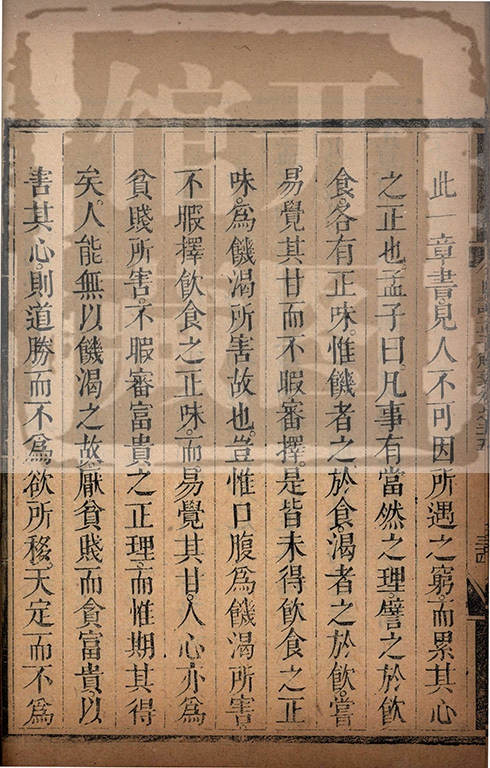 此一章書見人不可因所遇之窮而累其心
之正也孟子曰凡事有當然之理譬之於飲
食各有正味惟饑者之於食渴者之於飲嘗
易覺其甘而不暇審擇是皆未得飲食之正
味為饑渴所害故也豈惟口腹為饑渴所害
不暇擇飲食之正味而易覺其甘人心亦為
貧賤所害不暇審富貴之正理而惟期其得
矣人能無以饑渴之故厭貧賤而貪富貴以
害其心則道勝而不為欲所移天定而不為